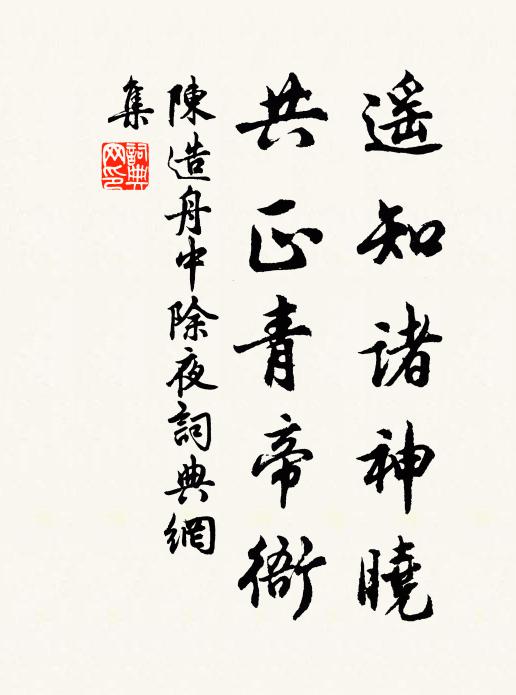 遥知諸神曉
共正青帝衙
陳造舟中除夜詞典網
集
詞典网印